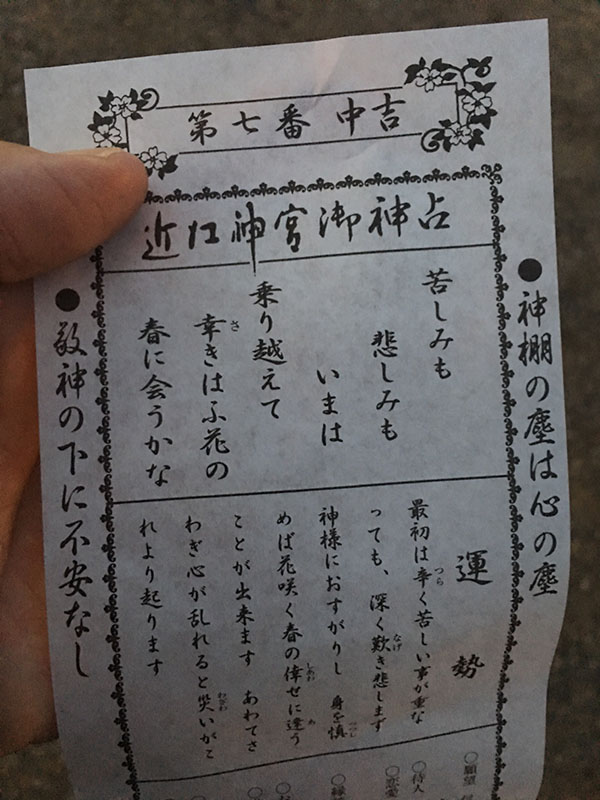 第七番 中吉
近江神宮御神占
●神棚の塵は心の塵
苦しみも
悲しみも
いまは
乗り越えて
幸きはふ花の
春に会うかな
運勢
最初は辛く苦しい事が重な
っても、深く歎き悲します
神様におすがりし 身を慎
めば花咲く春の倖せに逢う
ことが出来ます あわてさ
わぎ心が乱れると災いがこ
れより起ります
○願望
○待人
○恋愛
●敬神の下に不安なし